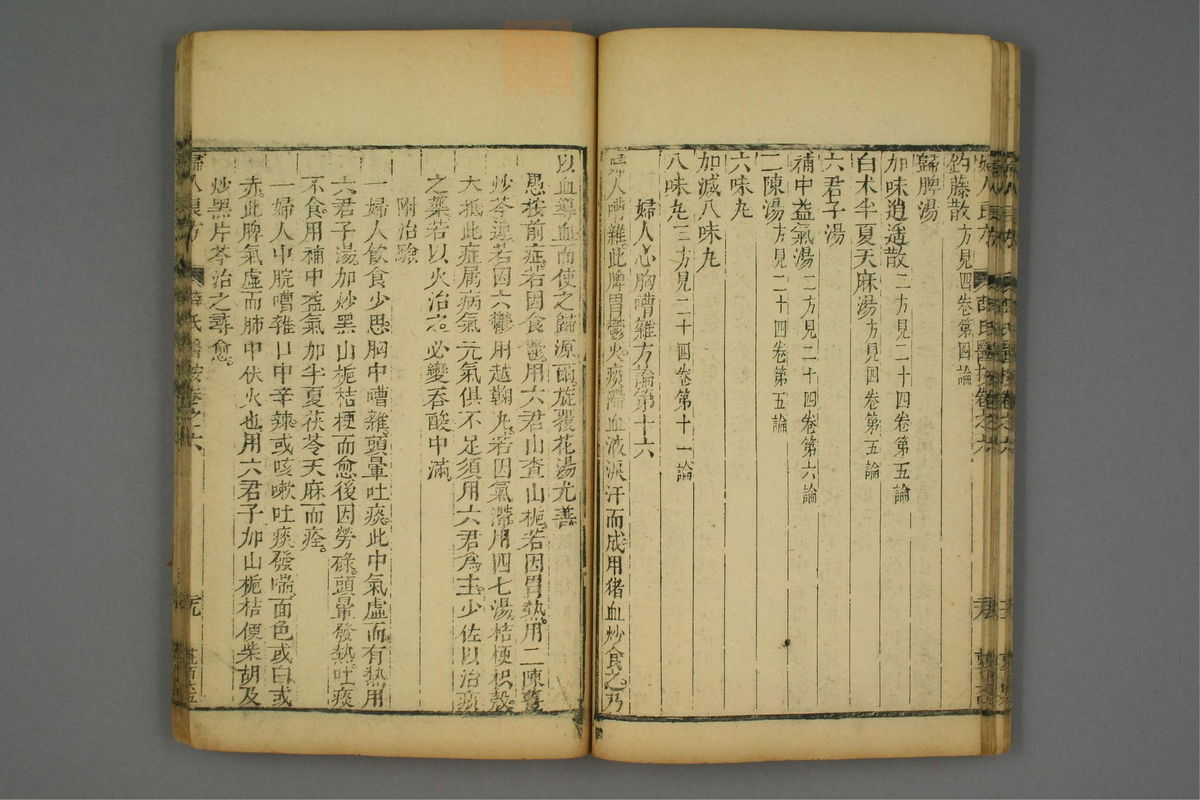 釣藤散方見四卷第四論
歸脾湯
加味逍遙散二方見二十四卷第五論
白朮半夏天麻湯方見四卷第五論
六君子湯
補中益氣湯二方見二十四卷第六論
二陳湯方見二十四卷第五論
六味丸
加減八味丸
八味丸三方見二十四卷第十一論
婦人心胸嘈雜方論第十六
婦人嘈雜此脾胃鬱火痰滯血液淚汗而成用猪血炒食之乃
以血導血而使之歸源爾旋覆花湯尤善
愚按前症若因食鬱。用六君山查山梔。若因胃熱。用二陳薑
炒芩連若因六鬱用越鞠丸。若因氣滯用四七湯桔梗枳殼。
大抵此症属病氣元氣俱不足須用六君為主。少佐以治痰
之藥若以火治之。必變吞酸中滿。
附治驗
一婦人飲食少思。胸中嘈雜。頭暈吐痰。此中氣虛而有熱用
六君子湯加炒黑山梔桔梗而愈後因勞碌。頭暈發熱吐痰
不食。用補中益氣加半夏茯苓天麻而痊。
一婦人中脘嘈雜口中辛辣。或咳嗽吐痰發喘。面色或白或
赤。此脾氣虛而肺中伏火也用六君子加山梔桔梗柴胡及
炒黑片芩治之尋愈。
婦人良方
薛氏醫按卷之六